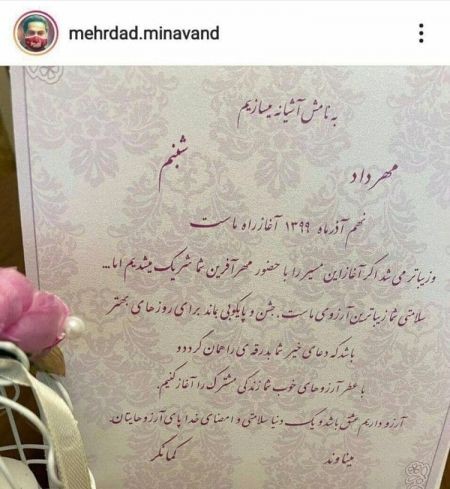 mehrdad.minavand
به نامش آشیانه میسازیم
مهرداد
شبنم
نهم آذر ماه ۱۳۹۹ آغاز راه ماست
و زیباتر می شد اگر آغاز این مسیر را با حضور مهرآفرین شما شریک میشدیم اما...
سلامتی شما زیباترین آرزوی ماست. جشن و پایکوبی بماند برای روزهای بهتر
باشد که دعای خیر شما بدرقه ی راهمان گردد و
با عطر آرزوهای خوب شما زندگی مشترک را آغاز کنیم.
آرزو داریم عشق باشد و یک دنیا سلامتی و امضای خدا پای آرزوهایتان.
میناوند
کمانگر